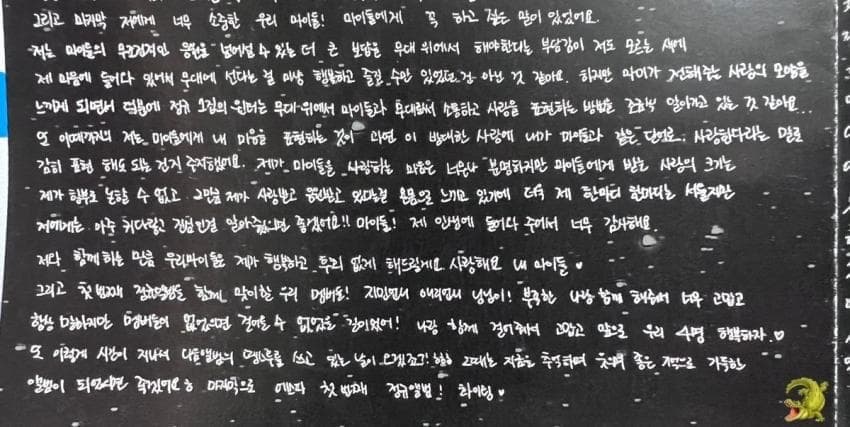 그리고 마지막 저에게 너무 소중한 우리 마이들! 마이들에게 꼭 하고 싶은 말이 있었어요.
저는 마이들의 무조건적인 응원을 넘어설 수 있는 더 큰 보답을 무대 위에서 해야한다는 부담감이 저도 모르는 새에
제 마음에 들어와 있어서 무대에 선다는 걸 마냥 행복하고 즐길 수만 있었던 건 아닌 것 같아요. 하지만 마이가 전해주는 사랑의 모양을
느끼게 되면서 덕분에 정규 1집의 윈터는 무대 위에서 마이들과 무대로서 소통하고 사랑을 표현하는 방법을 조금씩 알아가고 있는 것 같아요..
또 이때까지의 저는 마이들에게 내 마음을 표현하는 것이 과연 이 방대한 사랑에 내가 마이들과 같은 단어로, 사랑한다라는 말로
감히 표현 해도 되는 건지 주저했어요. 제가 마이들을 사랑하는 마음은 너무나 분명하지만 마이들에게 받는 사랑의 크기는
제가 함부로 논할 수 없고 그만큼 제가 사랑받고 응원받고 있다는걸 온몸으로 느끼고 있기에 더욱 제 한마디 한마디는 서툴지만
저에게는 아주 커다랗고 진심인걸 알아줬으면 좋겠어요!! 마이들! 제 인생에 들어와 주어서 너무 감사해요
저와 함께하는 만큼 우리마이들은 제가 행복하고 후회 없게 해드릴게요 사랑해요 내 마이들 ♥
그리고 첫 번째 정규앨범을 함께 맞이할 우리 멤버들! 지민언니 애리언니 닝닝이! 부족한 나랑 함께 해줘서 너무 고맙고
항상 말하지만 멤버들이 없었으면 걸어올 수 없었을 길이었어! 나랑 함께 걸어줘서 고맙고 앞으로 우리 4명 행복하자 ♡
또 이렇게 시간이 지나서 다음앨범의 땡스투를 쓰고 있는 날이 오겠죠?! 그때는 지금을 추억하며 웃으며 좋은 기억으로 가득한
앨범이 되었으면 좋겠어요 ㅎ 마지막으로 에스파 첫 번째 정규앨범! 화이팅 ♥